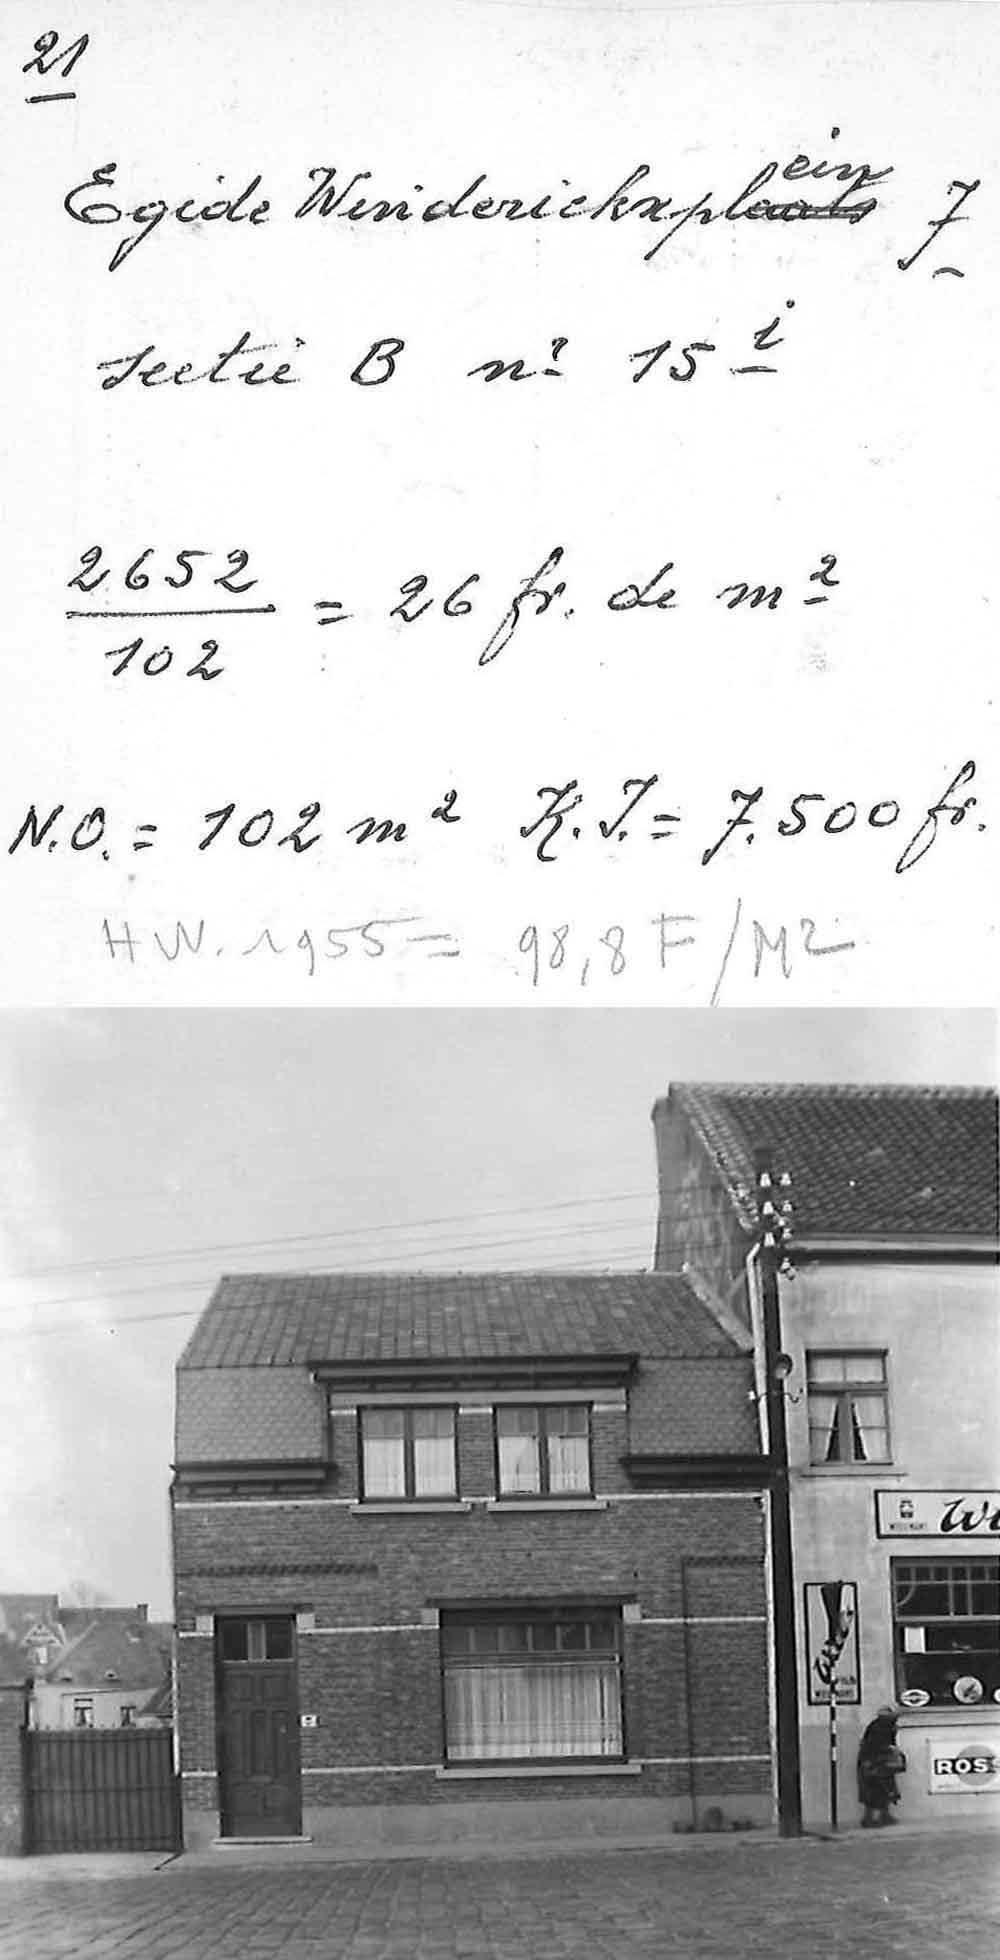 21
Egide Winderickxplaats ein 7
sectie B nº 15 i
2652
102
= 26 fr. de m²
N.O. = 102 m² K.I. = 7.500 fr.
HW. 1955 = 98,8 F/M2
ROS